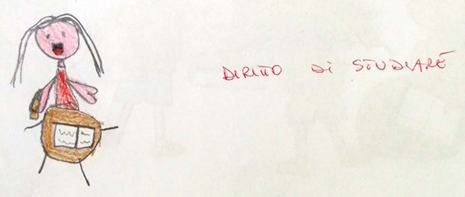 DIRITTO DI STUDIARE